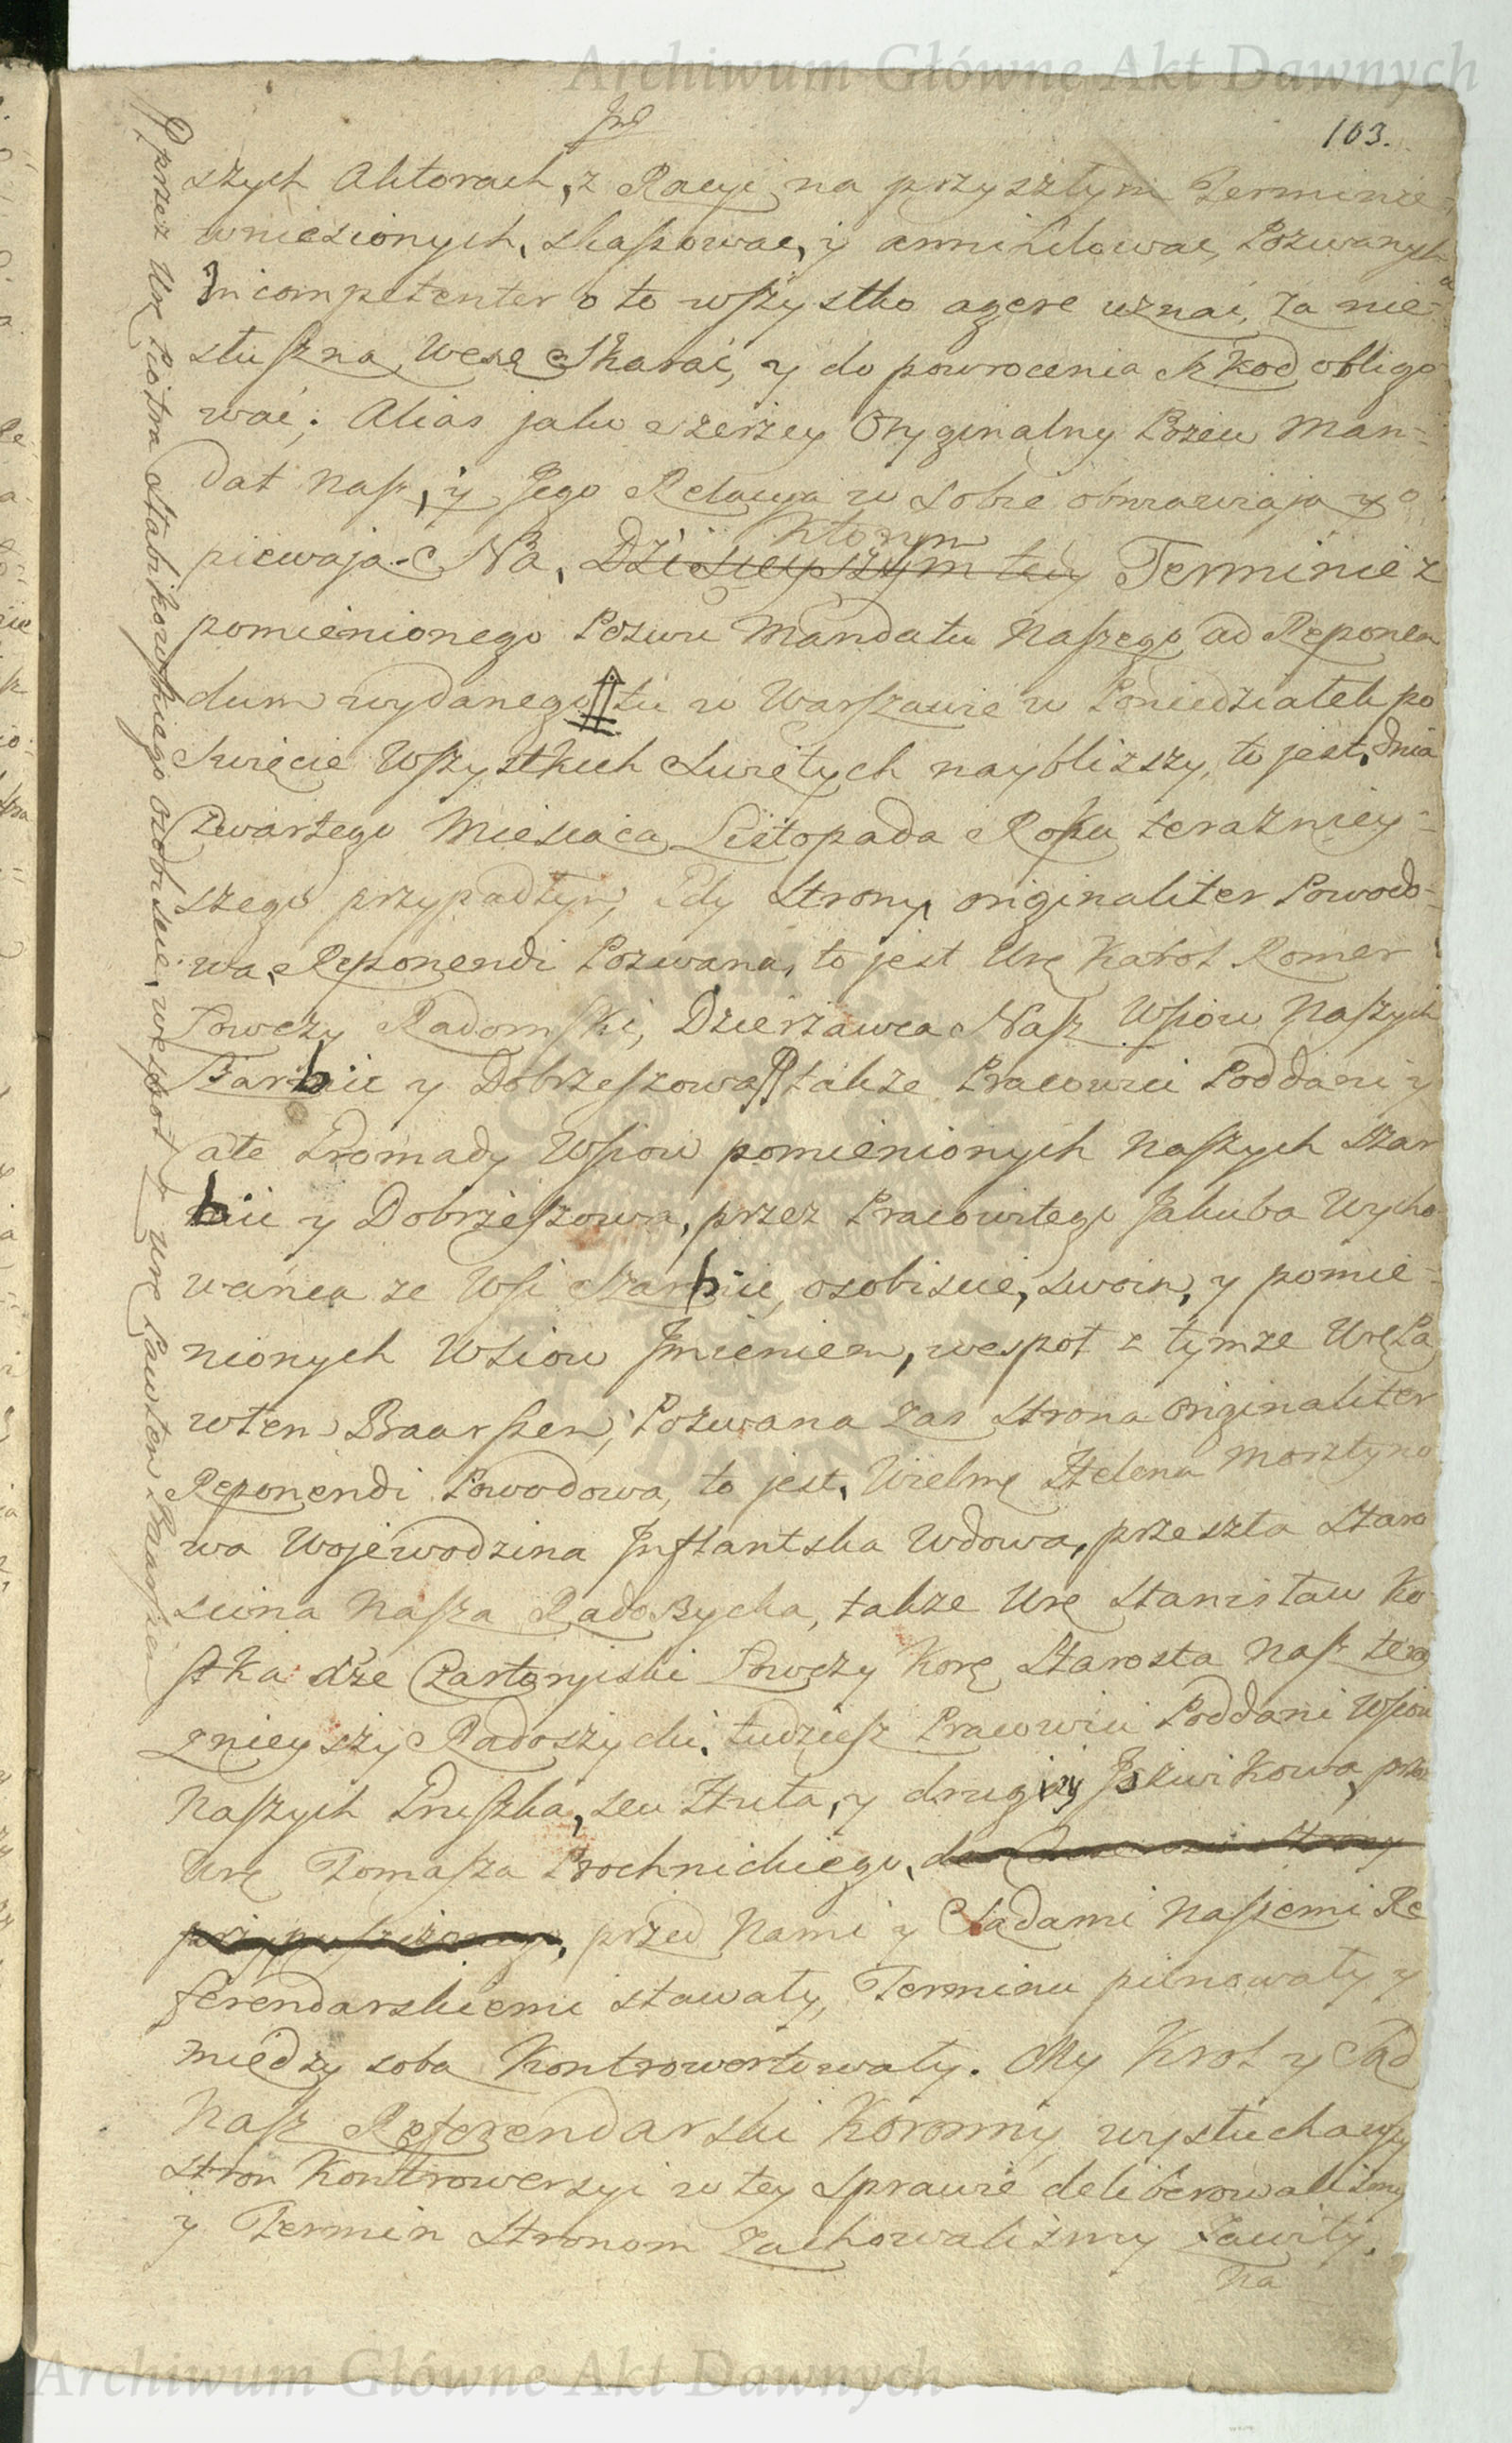 Archiwum Główne Akt Dawnych
103.
szych Aktorach, z Racyi na przyszłym Terminie
wniesionych, skassować, y annihilować, Pozwanych
Incompetenter o to wszystko agere uznać, za nie-
słuszną Wexę skarać, y do powrócenia szkod obligo
wać; Alias jako szerzey Oryginalny Pozew Man-
dat Nasz, y Jego Relacya w sobie obmawiaią y o
piewaią. Na, Dzisieyszym tedy Terminie z
ktorym
pomienionego Pozwu Mandatu Naszego ad Reponen
dum wydanego tu w Warszawie w Poniedziałek po
Swięcie Wszystkich Swiętych nayblizszy, to jest, dnia
Czwartego Miesiąca Listopada Roku terazniey-
szego przypadłym, Gdy Strony originaliter Powodo-
wa, Reponendi Pozwana, to jest Urę Karol Romer
Łowczy Radomski, Dzierzawca Nasz Wsiow Naszych
y Dobrzeszowa także Pracowici Poddani y
ałe Gromady Wsiow pomienionych Naszych Szar
bie y Dobrzeszowa, przez Pracowitego Jakuba Wycho
wańca ze Wsi Szarbie, osobiscie, swoim, y pomie-
nionych Wsiow Imieniem, wespoł z tymze Urę La
wten Baarssen, Pozwana zas Strona originaliter
Reponendi Powodowa, to jest, Wielmę Helena Morsztyno
wa Wojewodzina Inflantska Wdowa, przeszła Staro
scina Nasza Radoszycka, także Urę Stanisław Ko
stka Xże Czartoryiski Łowczy Korę Starosta Nasz tera
znieyszy Radoszycki, tudziesz Pracowici Poddani Wsiow
Naszych Gruszka, seu Huta, y drugiey Jozwikowa, przez
Urę Tomasza Prochnickiego,
przed Nami y Sądami Naszemi Re
ferendarskiemi stawały, Terminu pilnowały y
między sobą Kontrowertowały. My Krol y Sąd
Nasz Referendarski Koronny wysłuchawszy
stron Kontrowersyi w tey Sprawie deliberowalismy
y Termin Stronom zachowalismy zawity.
Na
przez Urę Piotra Stabrikowskiego osobiscie, wespoł z Urę Lawten Baarssen
Archiwum Główne Akt Dawnych